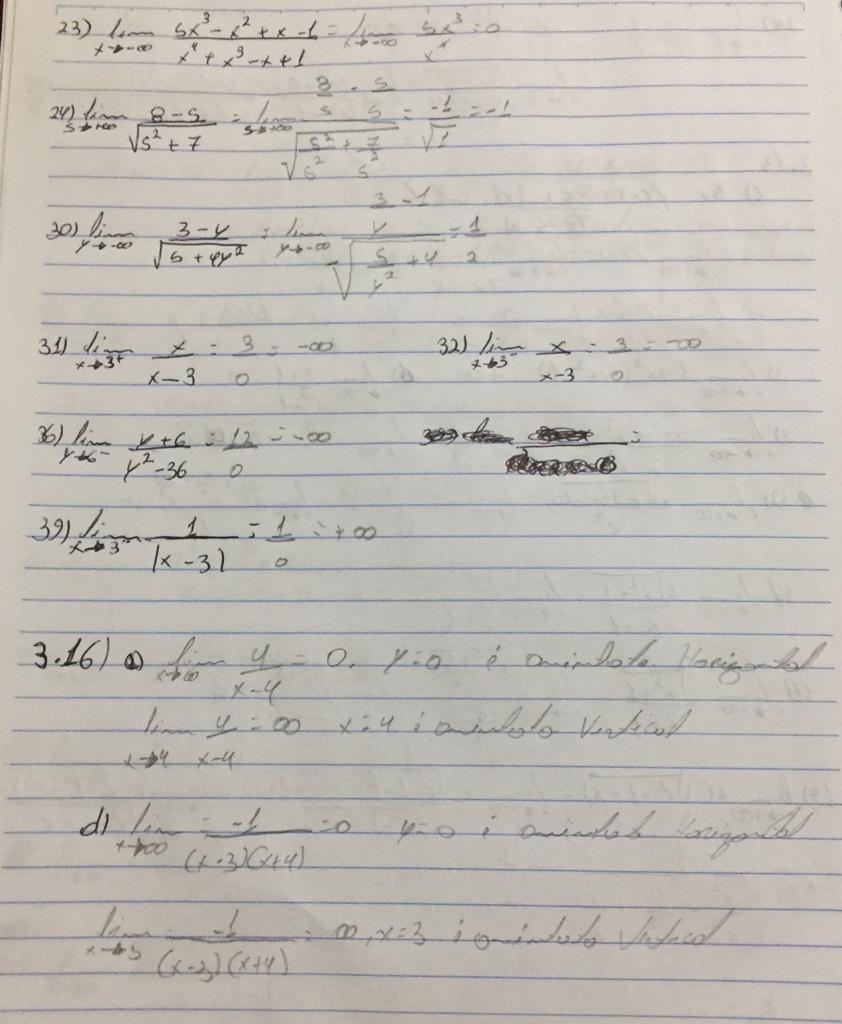 23) lim x→-∞ (5x³ - x² + x - 1)/(x⁴ + x³ - x + 1) = lim x→-∞ 5x³/x⁴ = 0
24) lim s→+∞ (8 - s)/√(s² + 7) = lim s→+∞ (8/s - s/s)/√(s²/s² + 7/s²) = -1/√1 = -1
30) lim y→-∞ (3 - y)/√(5 + 4y²) = lim y→-∞ (3/y - 1)/-√(5/y² + 4) = 1/2
31) lim x→3⁺ x/(x - 3) = 3/0 = -∞ 32) lim x→3⁻ x/(x-3) = 3/0 = -∞
36) lim y→6⁻ (y + 6)/(y² - 36) = 12/0 = -∞
39) lim x→3⁻ 1/|x - 3| = 1/0 = +∞
3.16) a) lim x→∞ 4/(x-4) = 0. y=0 é Horizontal
lim x→4 4/(x-4) = ∞ x=4 é Vertical
d) lim x→∞ = -1/((x-3)(x+4)) = 0 y=0 é Horizontal
lim x→3 -1/((x-3)(x+4)) = ∞, x=3 é Vertical